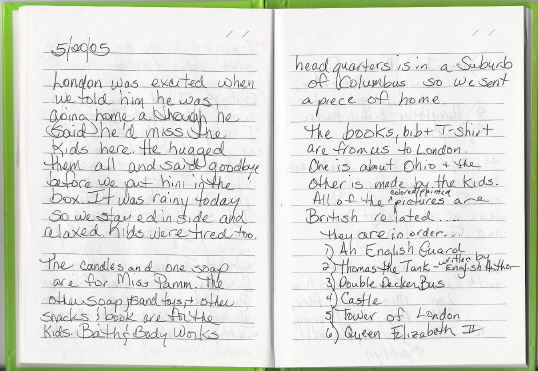 5/20/05
London was excited when
we told him he was
going home although he
said he'd miss the
kids here. He hugged
them all and said goodbye
before we put him in the
box. It was rainy today
so we stayed inside and
relaxed. Kids were tired too.
The candles and one soap
are for Miss Pamm. The
other soap, sand toys, + other
snacks & book are for the
kids. Bath & Body Works
headquarters is in a Suburb
of Columbus so we sent
a piece of home.
The books, bib + T-shirt
are from us to London.
One is about Ohio + the
other is made by the kids.
All of the colored/painted pictures are
British related.....
They are in order...
1) An English Guard
2) Thomas the Tank - written by English Author
3) Double Decker Bus
4) Castle
5) Tower of London
6) Queen Elizabeth II